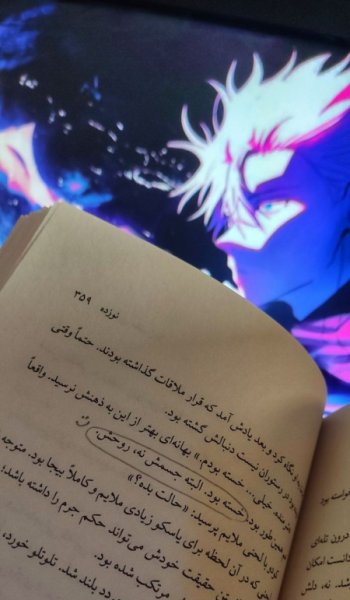 نوزده ۳۵۹
نگاه کرد و بعد یادش آمد که قرار ملاقات گذاشته بودند. حتماً وقتی
در رستوران نیست دنبالش گشته بود.
خیلی... خسته بودم.» بهانه‌ای بهتر از این به ذهنش نرسید. واقعاً
همین طور بود. خسته بود. البته جسمش نه، روحش.
کولو با لحنی ملایم پرسید: «حالت بده؟»
که در آن لحظه برای باسکو زیادی ملایم و کاملاً بیجا بود. متوجه
گفتن حقیقت خودش می‌تواند حکم جرم را داشته باشد؛
مرتکب شده بود.
درد بلند شد. تلوتلو خورد،
خواسته بود
درون تله‌ای
دانست امکان
شد. نه، دلش